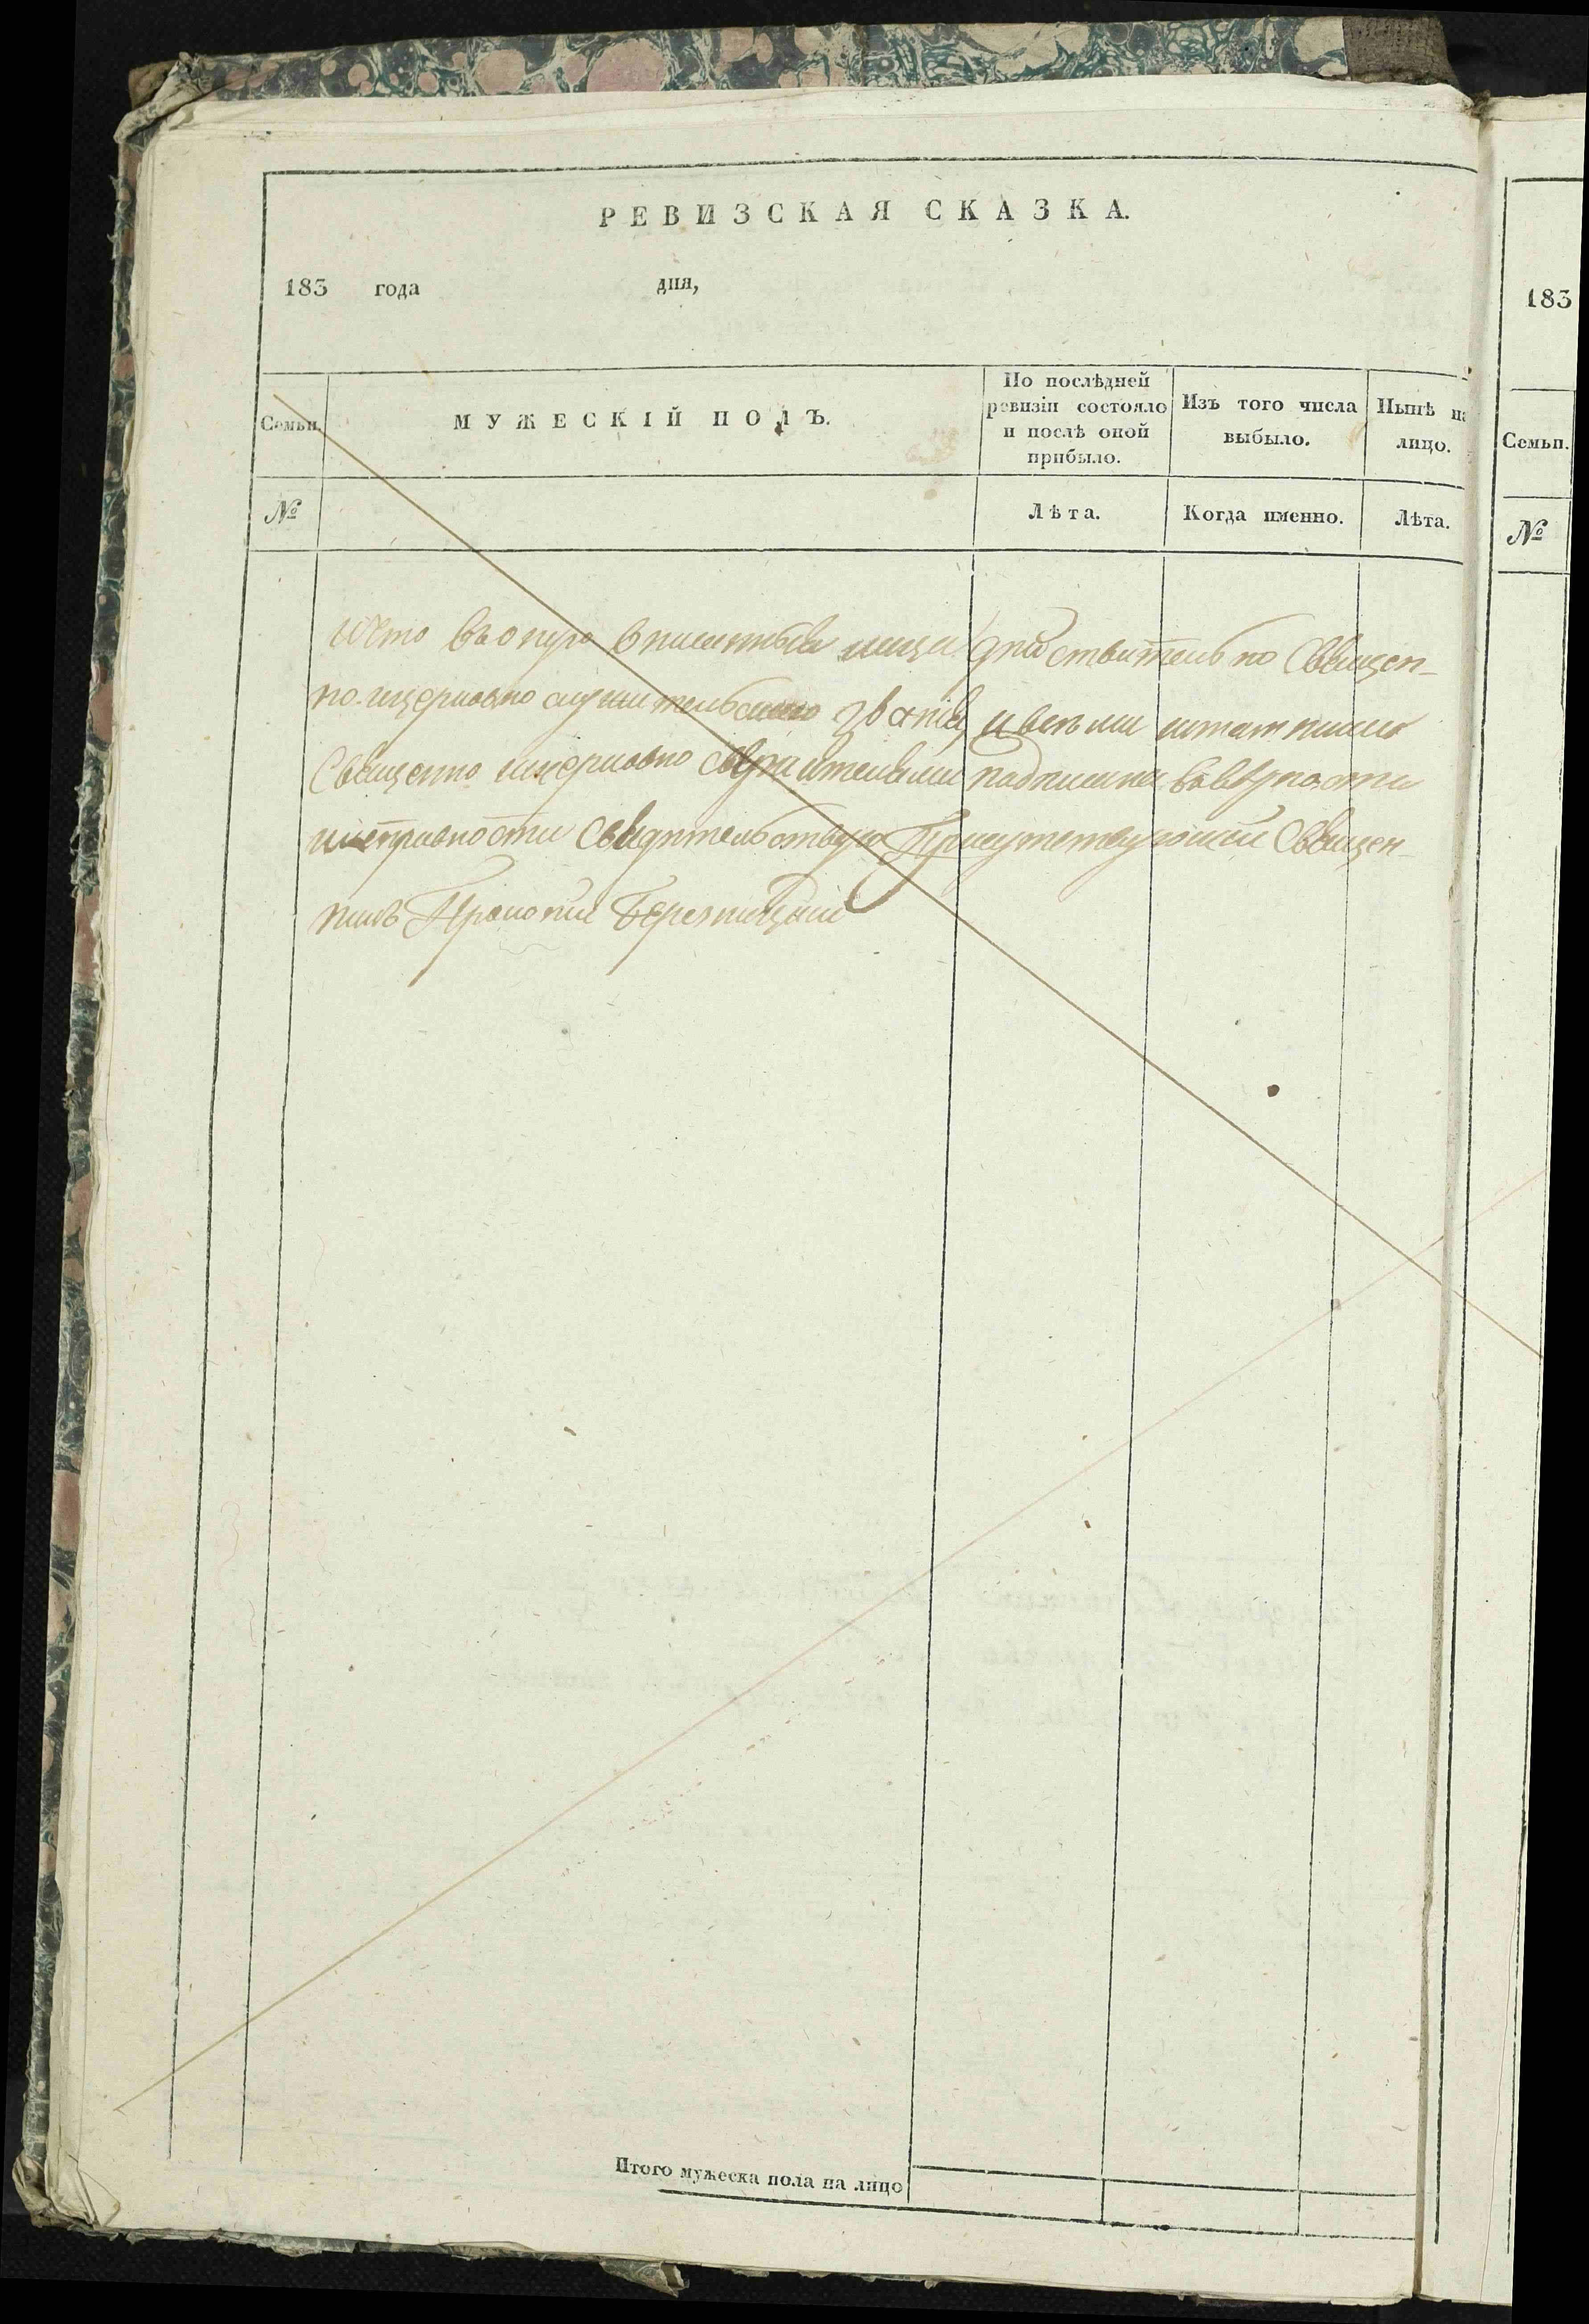 РЕВИЗСКАЯ СКАЗКА.
183 года дня,
183
Семьи.
МУЖЕСКІЙ ПОЛЪ.
По послѣдней
ревизіи состояло
и послѣ оной
прибыло.
Изъ того числа
выбыло.
Нынѣ на
лицо.
Семьи.
№
Лѣта.
Когда именно.
Лѣта.
№
Что въ оную вписанныя лица дѣйствительно Священ-
но-церковно служительскаго званія, и всѣми штатными
Священно церковно служителями подписана въ вѣрности
исправности свидѣтельствую Присутствующій Священ-
никъ Прокопий
Итого мужеска пола на лицо